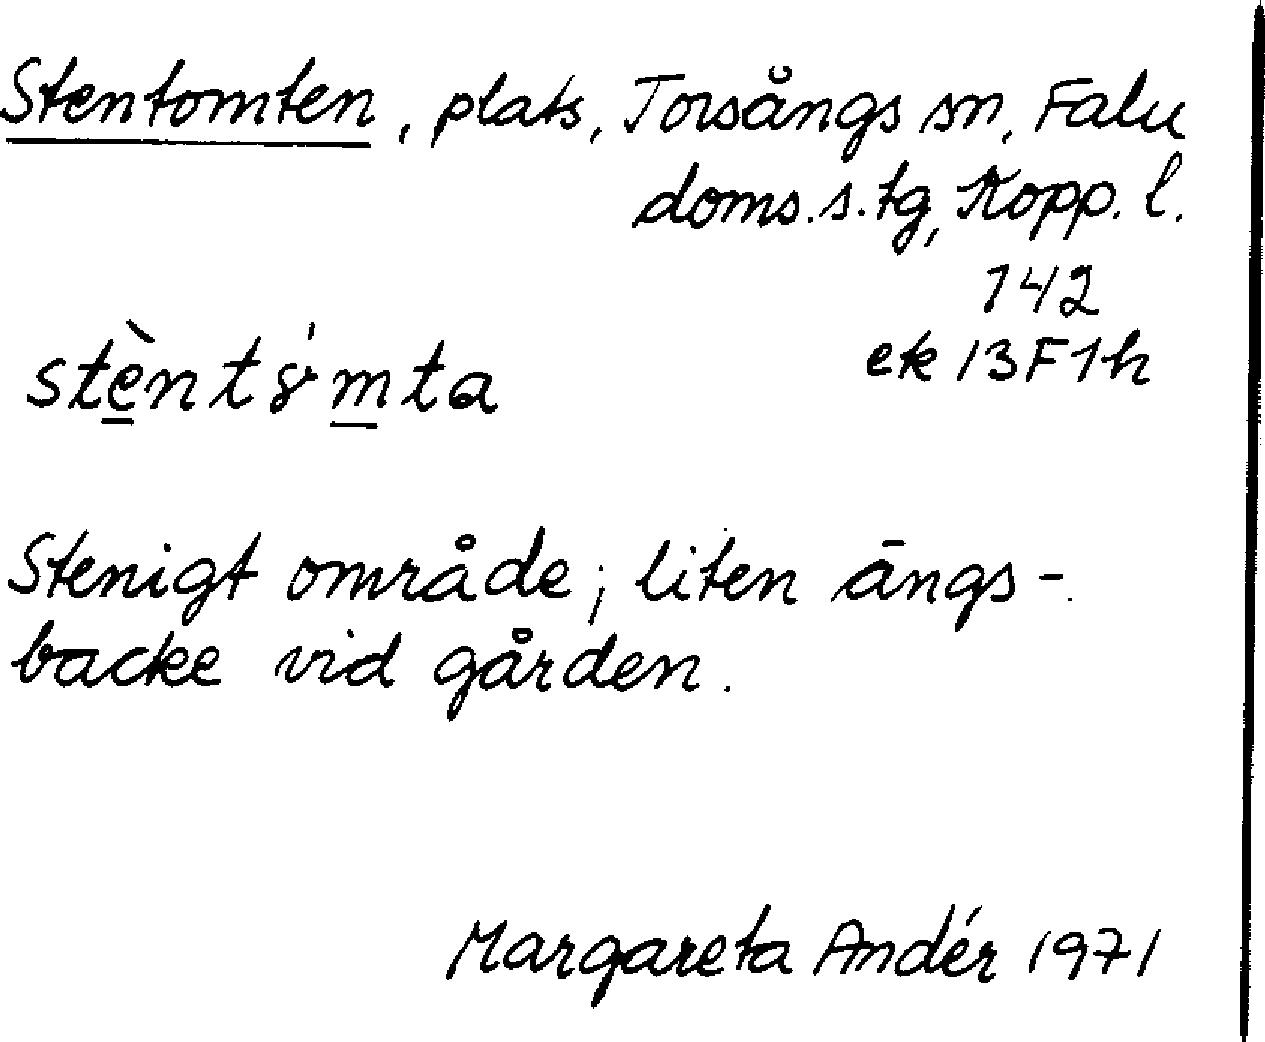 Stentomten, plats, Torsångs sn, Falu
doms.s.tg, Kopp. l.
142
ek 13F1h
Stenigt område; liten ängs-
backe vid gården.
Margareta Andér 1971